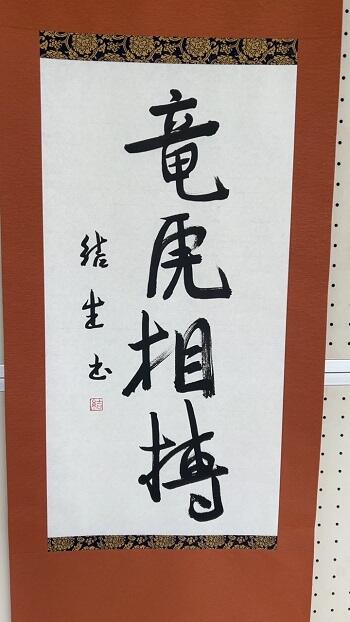 竜虎相搏
結生書
結